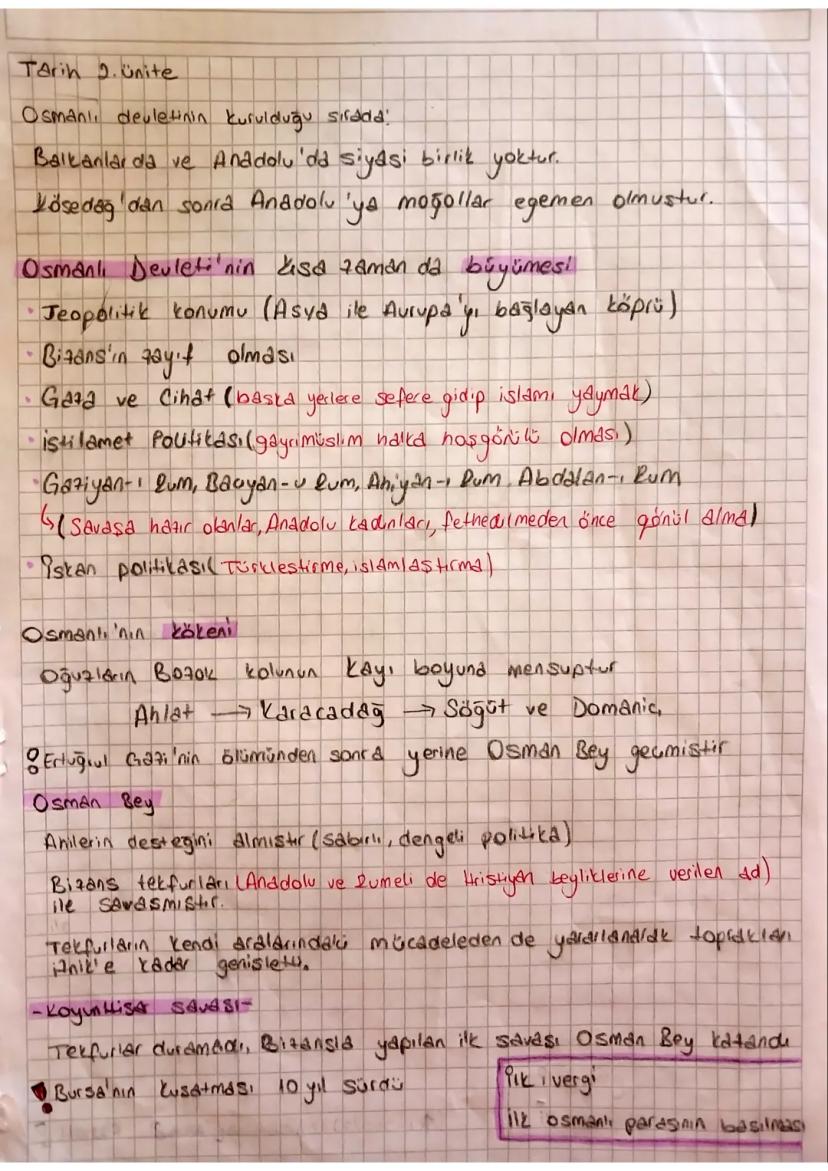 Tarih 2. ünite
Osmanlı devletinin kurulduğu sırada:
Balkanlarda ve Anadolu'da siyasi birlik yoktur.
Kösedağ'dan sonra Anadolu'ya moğollar egemen olmuştur.
Osmanlı Devleti'nin kısa zaman da büyümesi
• Jeopolitik konumu (Asya ile Avrupa'yı bağlayan köprü)
• Bizans'ın zayıf olması
• Gaza ve Cihat (başka yerlere sefere gidip islamı yaymak)
• istilamet Politikası (gayrimüslim halka hoşgörülü olması)
• Gaziyan-ı Rum, Bacıyan-ı Rum, Ahiyan-ı Rum, Abdalan-ı Rum
↳ (Savaşa hazır olanlar, Anadolu kadınları, fethedilmeden önce gönül alma)
• İskan politikası (Türkleştirme, islamlaştırma)
Osmanlı'nın kökeni
Oğuzların Bozok kolunun Kayı boyuna mensuptur
Ahlat → Karacadağ → Söğüt ve Domaniç
Ertuğrul Gazi'nin ölümünden sonra yerine Osman Bey geçmiştir
Osman Bey
Ahilerin desteğini almıştır (sabırlı, dengeli politika)
Bizans tekfurları (Anadolu ve Rumeli de Hristiyan beyliklerine verilen ad)
ile savaşmıştır.
Tekfurların kendi aralarındaki mücadeleden de yararlanarak toprakları
iznik'e kadar genişletti.
-Koyunhisar savaşı-
Tekfurlar duramadı, Bizansla yapılan ilk savaşı Osman Bey kazandı
! Bursa'nın kuşatması 10 yıl sürdü
İlk vergi
ilk osmanlı parasının basılması